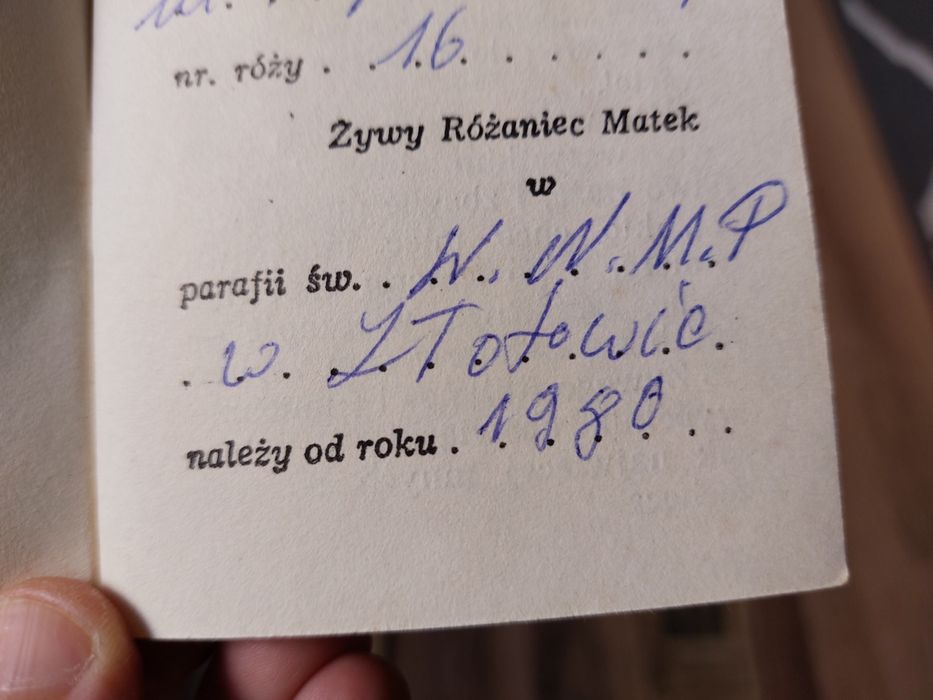 nr. róży . . 16 . . . . . .
Żywy Różaniec Matek
w
parafii św. . W. N. M. P
. w . Złotowie .
należy od roku . 1980 . .